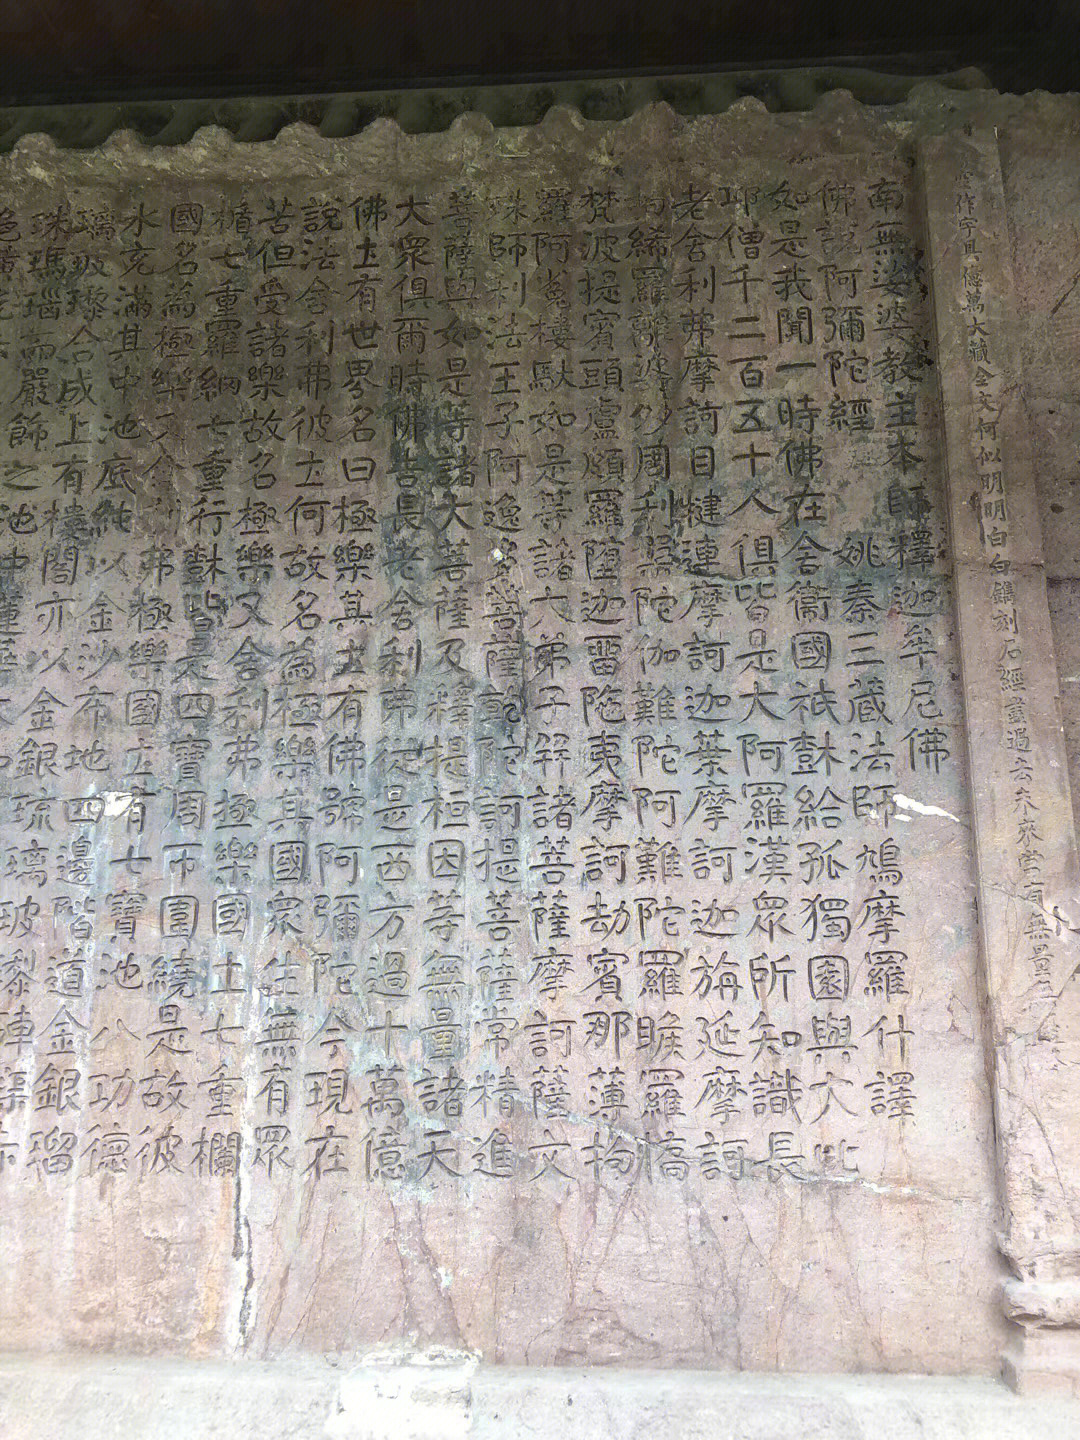 作字具億萬大藏全文何似明明白白鐫刻石經畫過去未來當有無量
南無娑婆教主本師釋迦牟尼佛
佛說阿彌陀經 姚秦三藏法師鳩摩羅什譯
如是我聞一時佛在舍衞國祇𭬨給孤獨園與大比
丘僧千二百五十人俱皆是大阿羅漢眾所知識長
老舍利弗摩訶目犍連摩訶迦葉摩訶迦旃延摩訶
絺羅離婆多周利槃陀伽難陀阿難陀羅睺羅憍
梵波提賓頭盧頗羅墮迦畱陁夷摩訶劫賓那薄拘
羅阿㝹樓馱如是等諸大弟子并諸菩薩摩訶薩文
殊師利法王子阿逸多菩薩乾陀訶提菩薩常精進
菩薩與如是等諸大菩薩及釋提桓因等無量諸天
大眾俱爾時佛告長老舍利弗從是西方過十萬億
佛土有世界名曰極樂其土有佛號阿彌陀今現在
說法舍利弗彼土何故名為極樂其國眾生無有眾
苦但受諸樂故名極樂又舍利弗極樂國土七重欄
楯七重羅網七重行𭬨皆是四寶周帀圍繞是故彼
國名為極樂又舍利弗極樂國土有七寶池八功德
水充滿其中池底純以金沙布地四邊階道金銀瑠
璃玻瓈合成上有樓閣亦以金銀琉璃玻瓈硨磲赤
珠瑪瑙而嚴飾之池中蓮華大如車